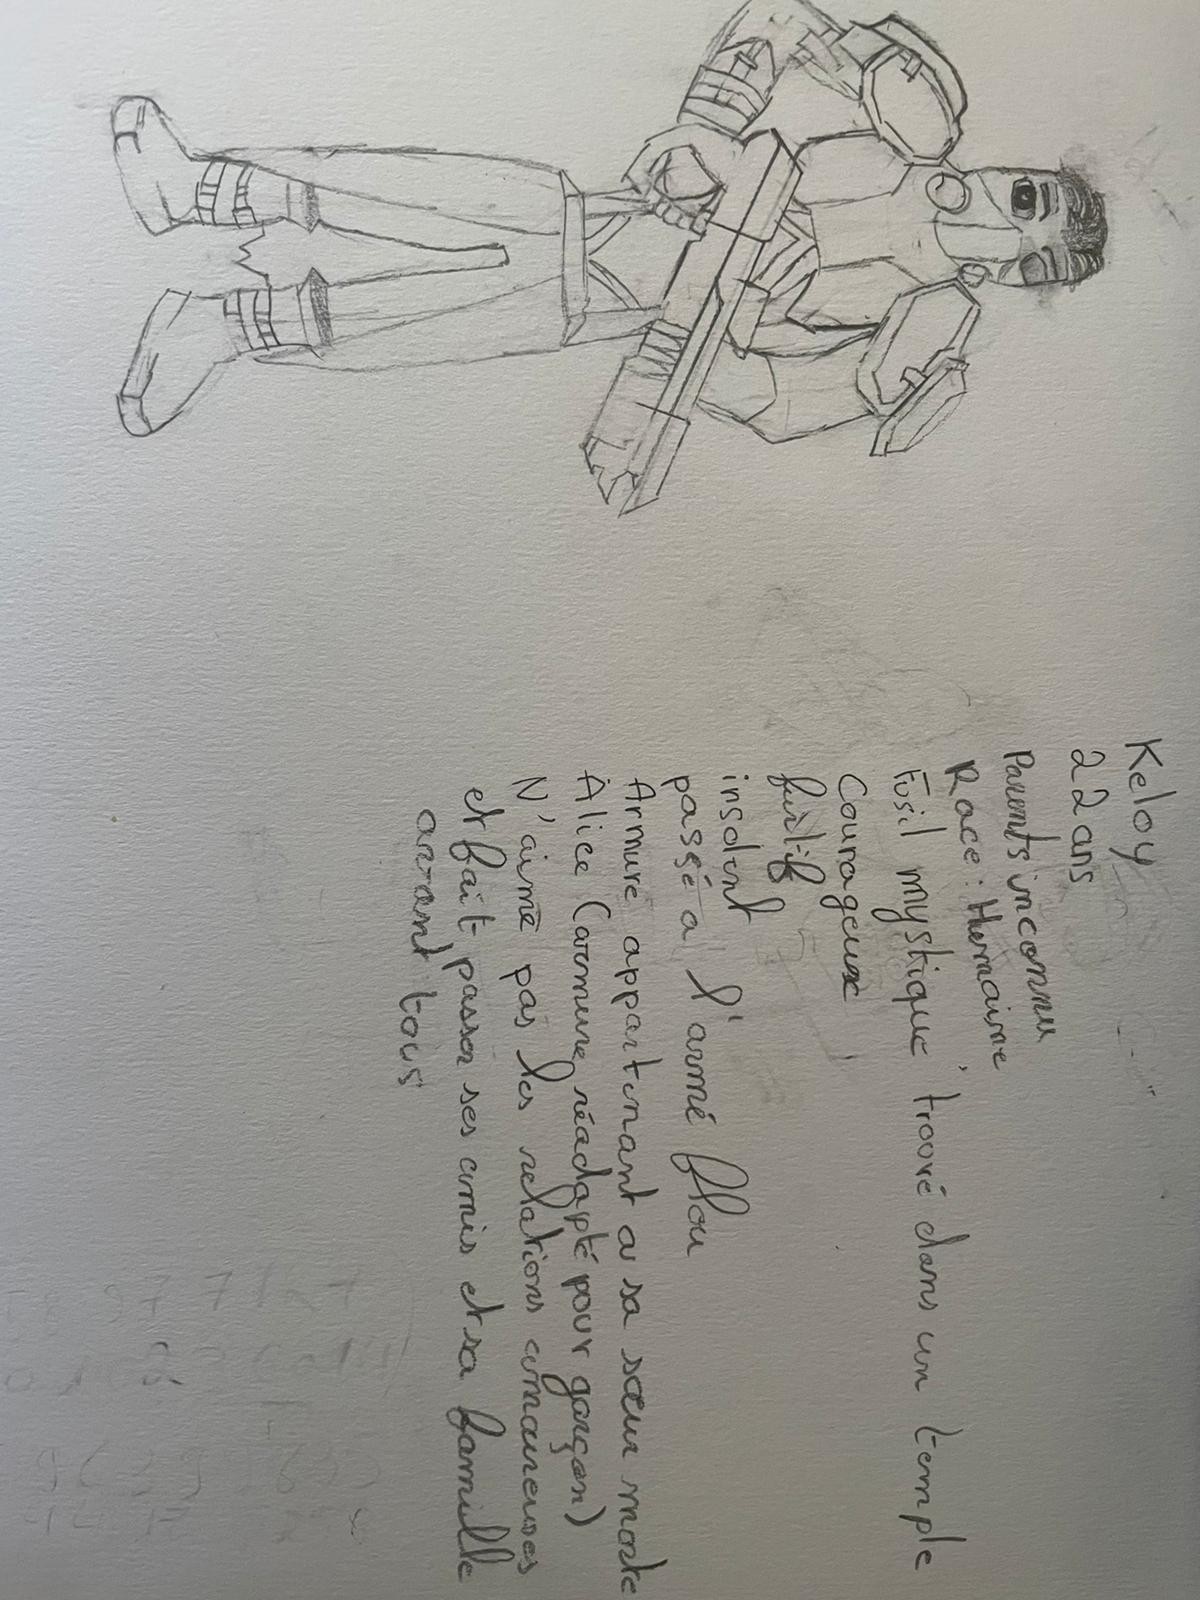 Keloy
22 ans
Parents inconnu
Race : Humaine
Fusil mystique, trouvé dans un temple
Courageux
furtif
insolent
passé a l'armé flou
Armure appartenant a sa sœur morte
Alice (armure réadapté pour garçon)
N'aime pas les relations amoureuses
et fait passer ses amis et sa famille
avant tous